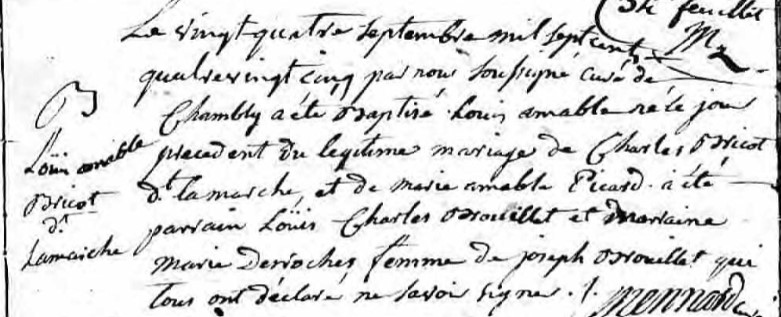 3e feuillet
Le vingt quatre septembre mil sept cent
quatrevingt cinq par nous soussigné curé de
B
Chambly a été Baptisé Louis amable né le jour
Loüis amable
precedent du legitime mariage de Charles Bricot
Bricot
dt lamarche, et de marie amable Picard. à été
dt
parrain Loüis Charles Brouillet et marraine
Lamarche
Marie Derroches femme de joseph Brouillet qui
tous ont déclaré ne savoir signer ./. Mennard curé